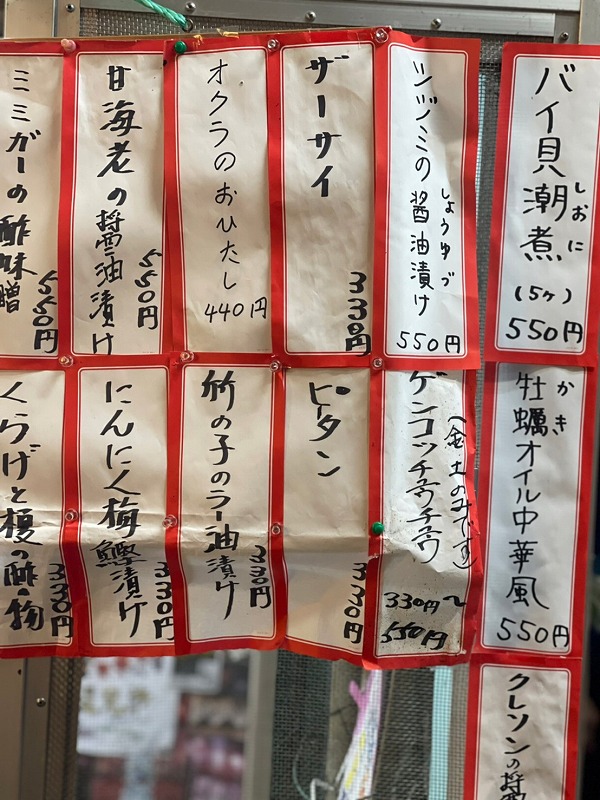 バイ貝潮煮
しおに
(5ヶ)
550円
シヅミの醤油漬け
しょうゆづ
550円
ザーサイ
330円
オクラのおひたし
440円
甘海老の醤油漬け
550円
ミミガーの酢味噌
550円
牡蠣オイル中華風
かき
550円
(金土のみです)
ゲンコッチュウチュウ
330円〜
550円
ピータン
330円
竹の子のラー油漬け
330円
にんにく梅鰹漬け
330円
くらげと榎の酢の物
330円
クレソンの醤